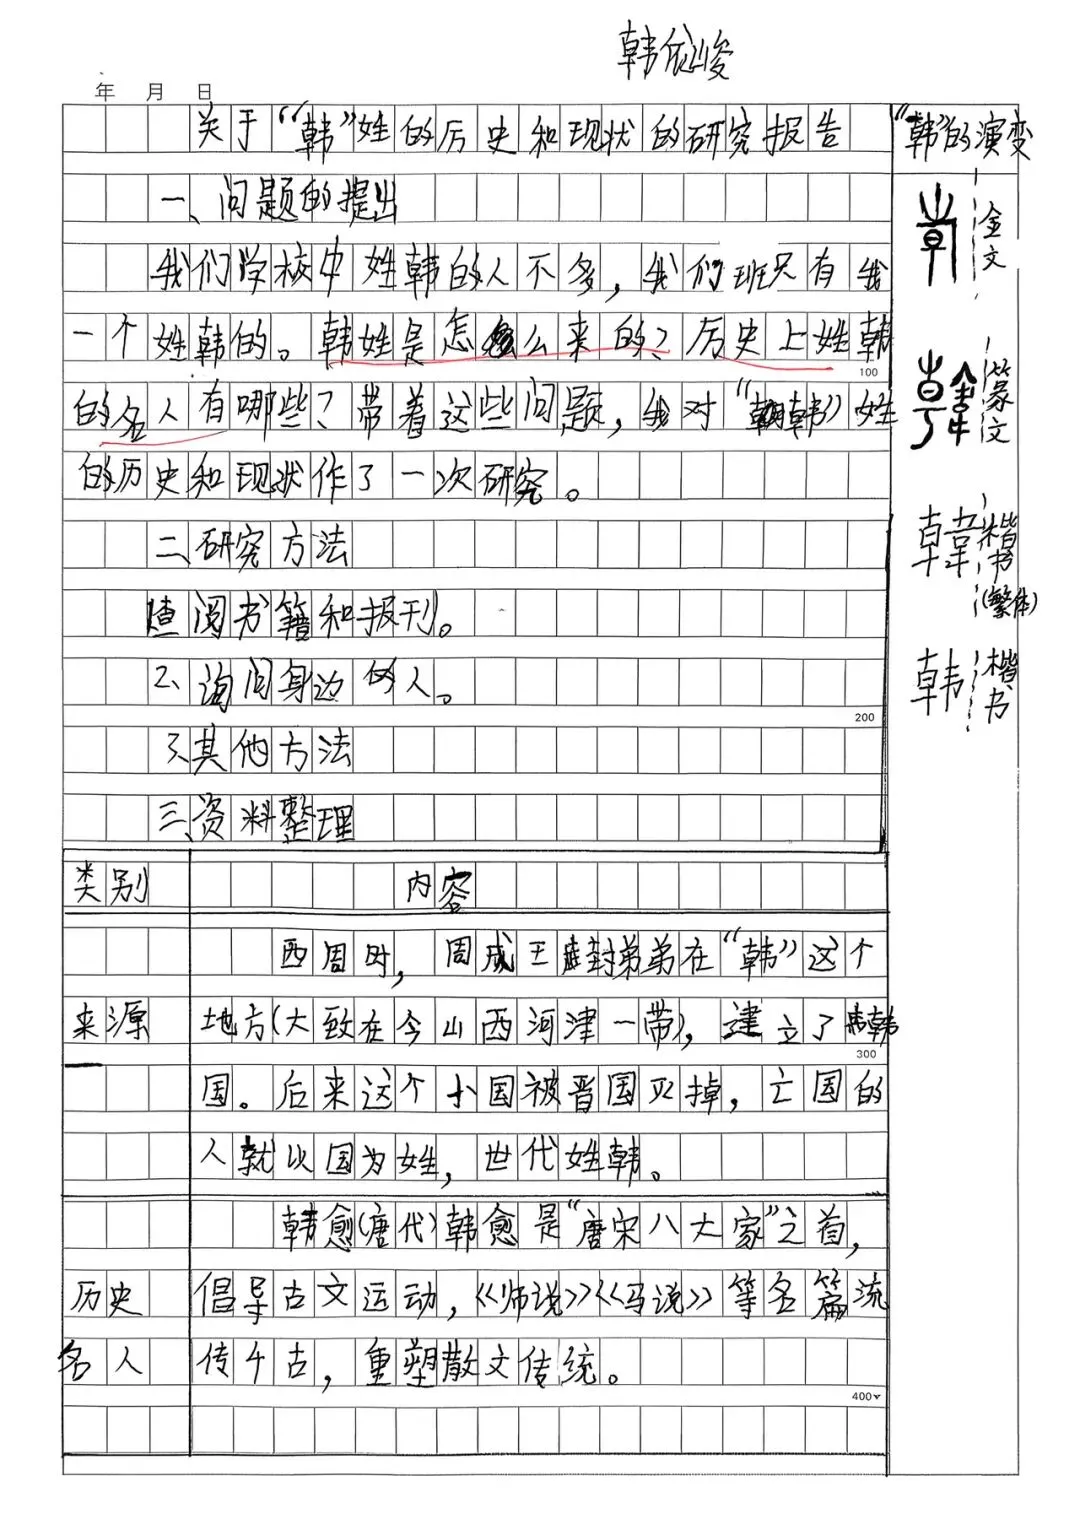 韩依峻
年 月 日
关于“韩”姓的历史和现状的研究报告
一、问题的提出
我们学校中姓韩的人不多，我们班只有我
一个姓韩的。韩姓是怎么来的？历史上姓韩
100
的名人有哪些？带着这些问题，我对“韩”姓
的历史和现状作了一次研究。
二、研究方法
查阅书籍和报刊。
2、询问身边的人。
200
3、其他方法
三、资料整理
类别 内容
西周时，周成王封弟弟在“韩”这个
来源 地方（大致在今山西河津一带），建立了韩
300
国。后来这个小国被晋国灭掉，亡国的
人就以国为姓，世代姓韩。
韩愈（唐代）韩愈是“唐宋八大家”之首，
历史 倡导古文运动，《师说》《马说》等名篇流
名人 传千古，重塑散文传统。
400
“韩”的演变
金文
篆文
韓 楷书（繁体）
韩 楷书